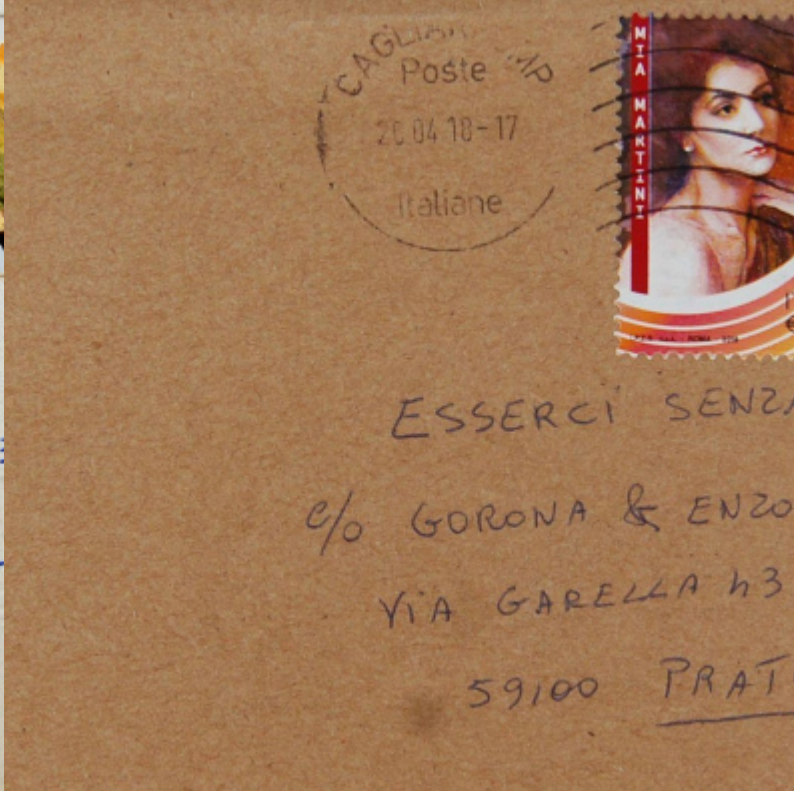 CAGLIARI
Poste
20 04 18-17
Italiane
MIA MARTINI
ESSERCI SENZA
c/o GORONA & ENZO
VIA GARELLA 43
59100 PRAT